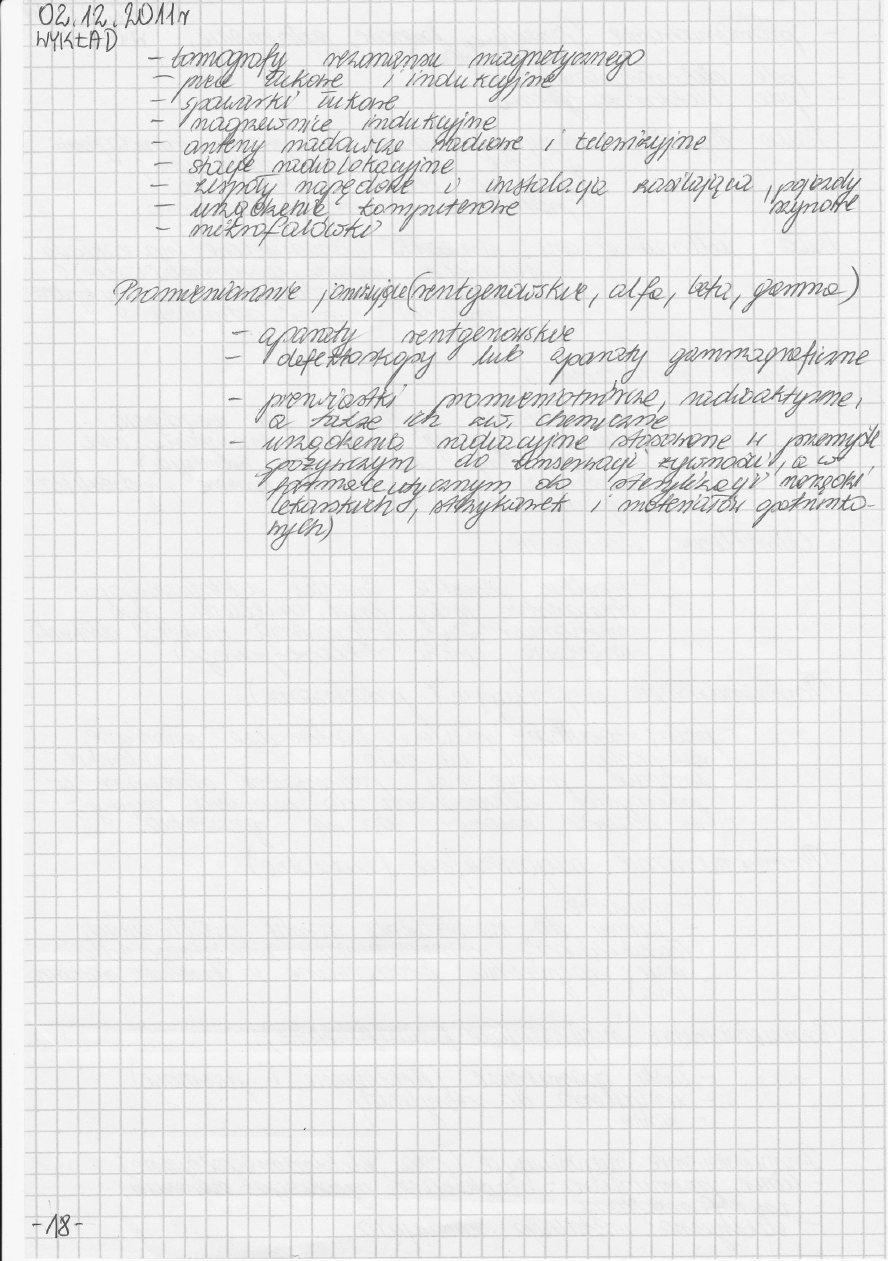 02.12.2011r
WYKŁAD
- tomografy rezonansu magnetycznego
- piece łukowe i indukcyjne
- spawarki łukowe
- nagrzewnice indukcyjne
- anteny nadawcze radiowe i telewizyjne
- stacje radiolokacyjne
- zespoły napędowe i instalacja zasilająca, pojazdy
szynowe
- urządzenia komputerowe
- mikrofalówki
Promieniowanie jonizujące (rentgenowskie, alfa, beta, gamma)
- aparaty rentgenowskie
- defektoskopy lub aparaty gammagraficzne
- pierwiastki promieniotwórcze, radioaktywne,
a także ich zw. chemiczne
- urządzenia radiacyjne stosowane w przemyśle
spożywczym do konserwacji żywności, a w
farmaceutycznym do sterylizacji narzędzi
lekarskich, strzykawek i materiałów opatrunko-
wych)
-18-